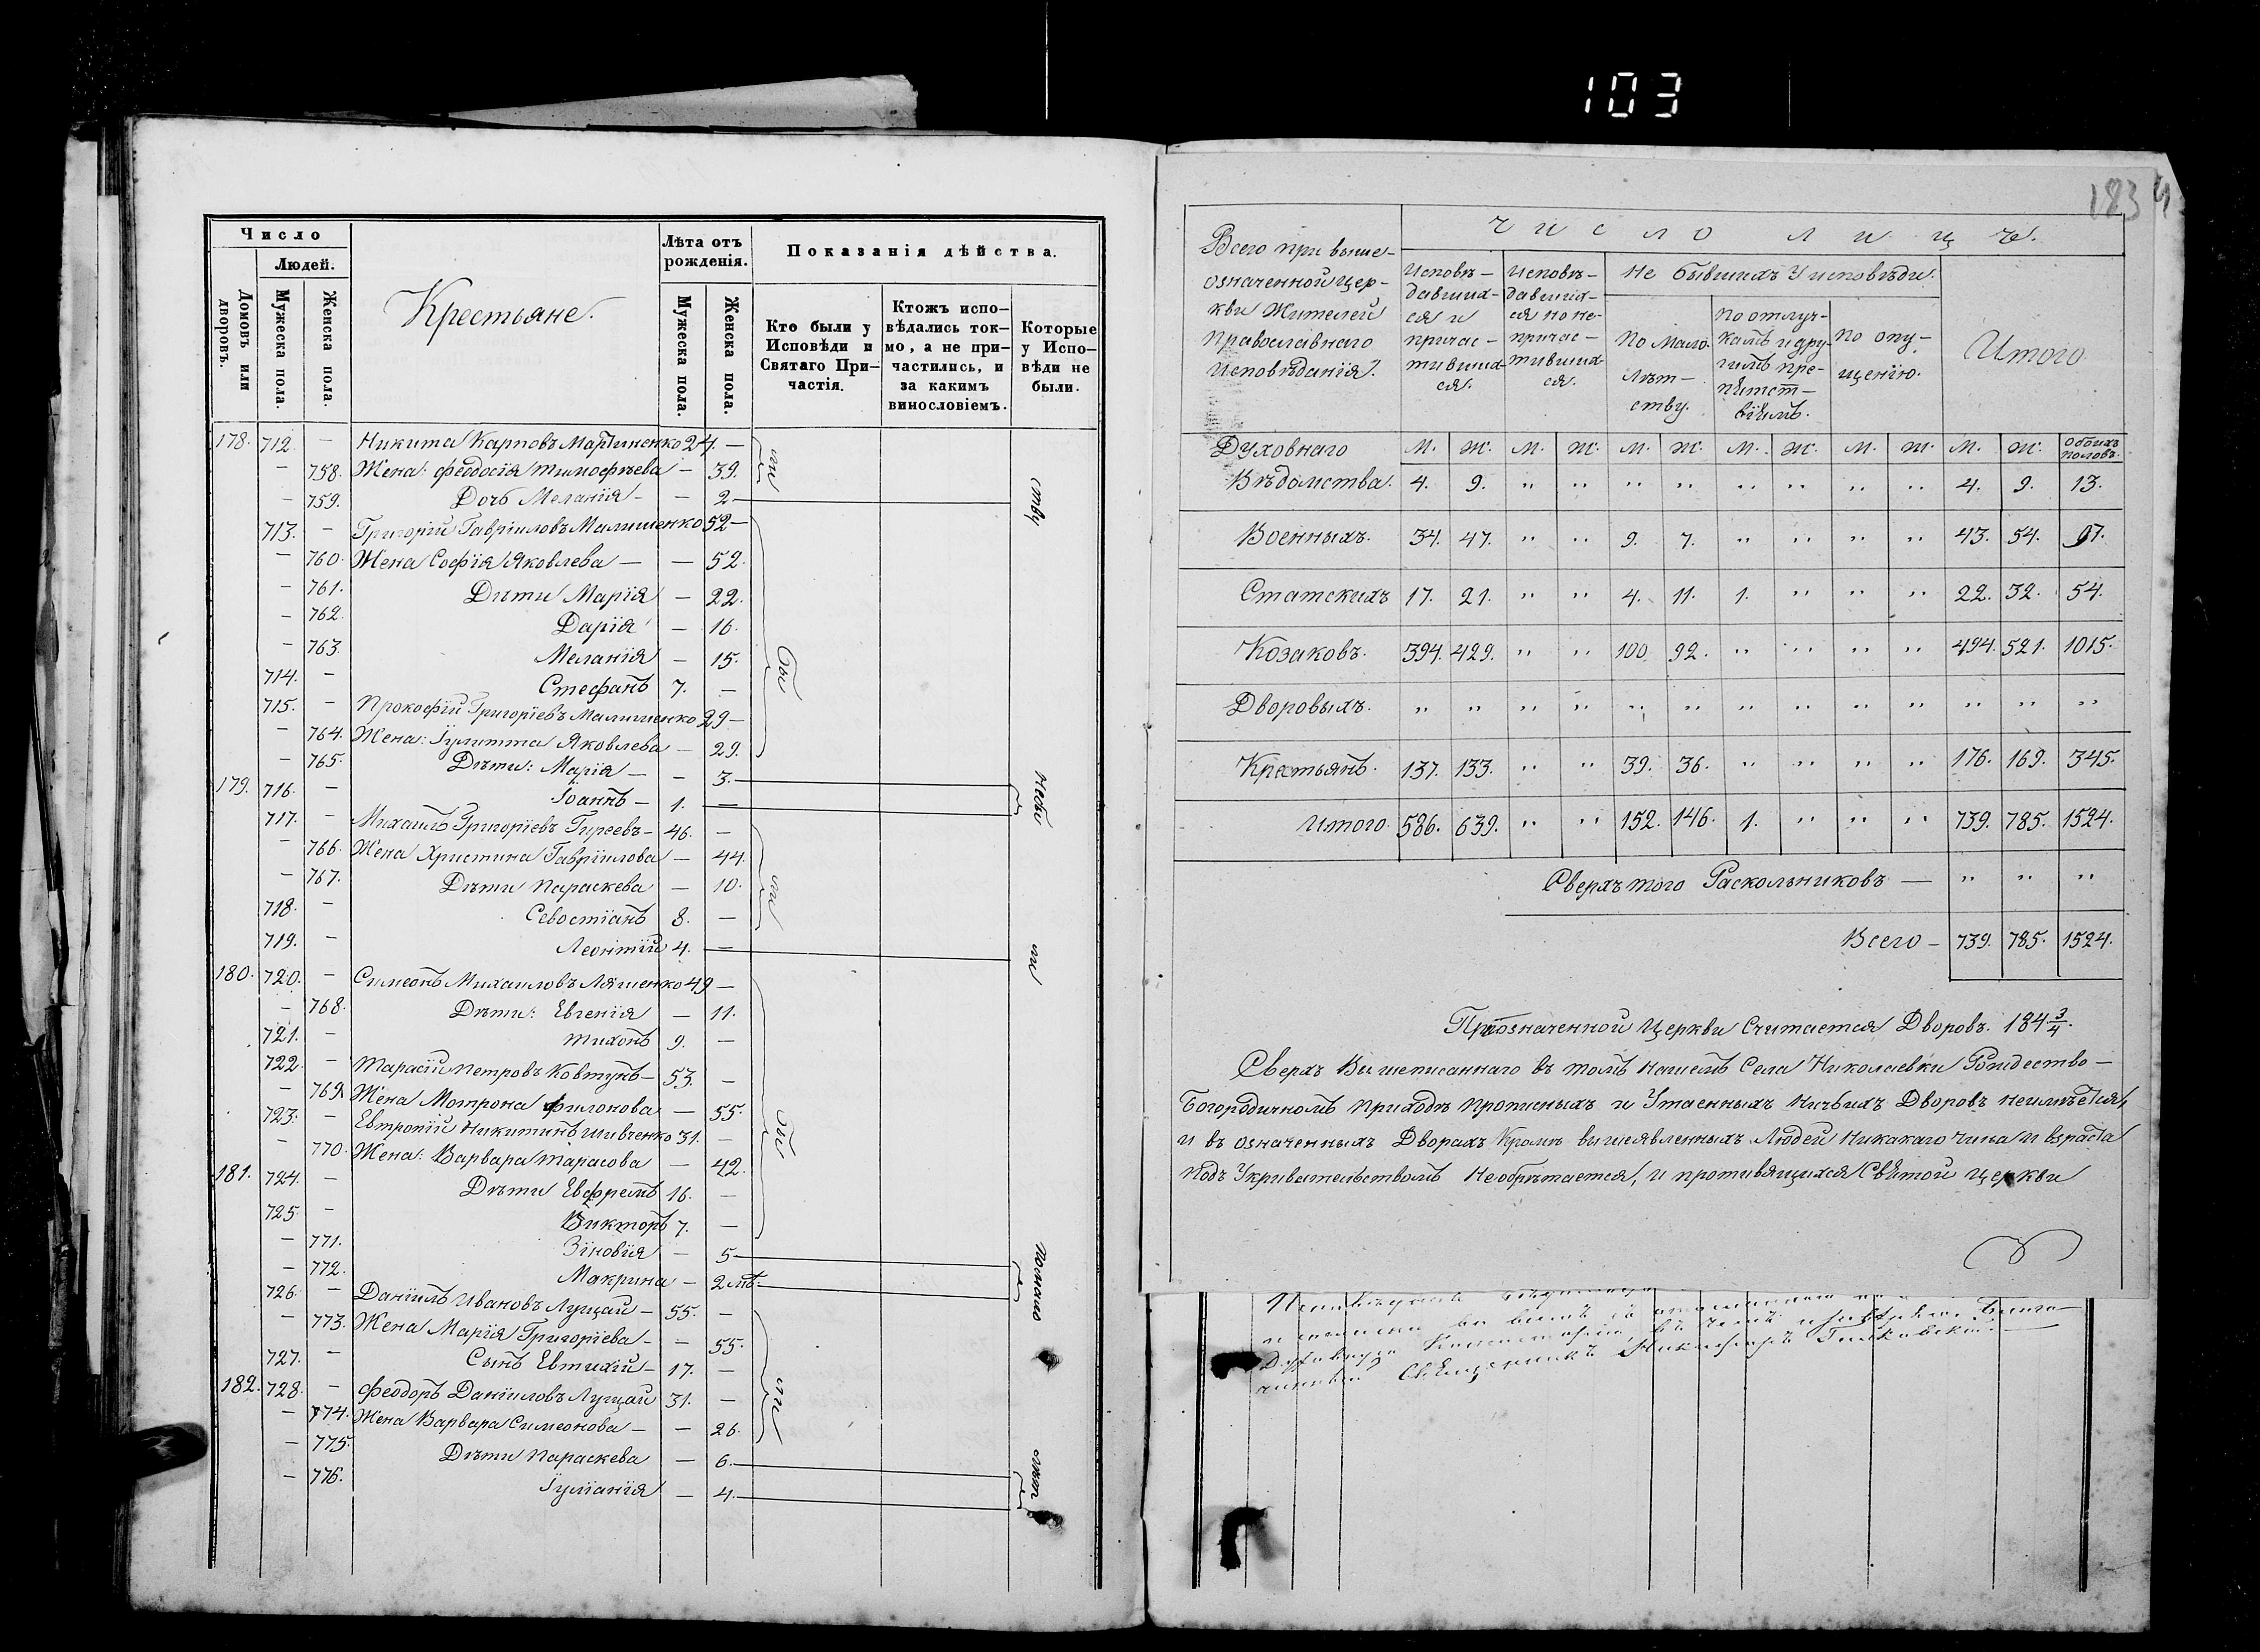 103
Число
Людей.
Домовъ или дворовъ.
Мужеска пола.
Женска пола.
Крестьяне.
Лѣта отъ рожденія.
Мужеска пола.
Женска пола.
Показанія дѣйства.
Кто были у Исповѣди и Святаго При-
частія.
Ктожъ испо-
вѣдались ток-
мо, а не при-
частились, и
за какимъ
винословіемъ.
Которые
у Испо-
вѣди не
были.
178. 712. — Никита Карповъ Мартиненко 24. —
— 758. Жена: Феодосія Тимофѣева — 39.
— 759. Дочь Меланія — — 2
713. — Григорій Гавріиловъ Малишенко 52 —
— 760. Жена Софія Яковлева — — 52.
— 761. Дѣти Марія — 22.
— 762. Дарія — 16.
— 763. Меланія — 15.
714. — Стефанъ 7. —
715. — Прокофій Григоріевъ Малишенко 29 —
— 764. Жена: Іулитта Яковлева — 29.
— 765. Дѣти: Марія — — 3.
179. 716. — Іоаннъ — 1. —
717. — Михаилъ Григоріевъ Гиреевъ — 46. —
— 766. Жена Христина Гавріилова — 44.
— 767. Дѣти Параскева — 10.
718. — Севостіанъ 8. —
719. — Леонтій 4. —
180. 720. — Симеонъ Михаиловъ Ляшенко 49 —
— 768. Дѣти: Евгенія — 11.
721. — Тихонъ 9. —
722. — Тарасій Петровъ Ковтунъ — 53. —
— 769. Жена Мотрона Филонова — 55.
723. — Евтропій Никитинъ Шивченко 31. —
— 770. Жена: Варвара Тарасова — 42.
181. 724. — Дѣти Евфремъ 16. —
725. — Викторъ 7. —
— 771. Зіновія — 5
— 772. Макрина — 2 мѣ.
726. — Даніилъ Ивановъ Луцай — 55. —
— 773. Жена Марія Григоріева — — 55.
727. — Сынъ Евтихій — 17. —
182. 728. — Феодоръ Даніиловъ Луцай 31. —
— 774. Жена Варвара Симеонова — — 26.
— 775. Дѣти Параскева — 6.
— 776. Іуліанія — 4.
ли
Бы
ли
Бы
ли
ству
183
Всего при выше-
означенной цер-
кви Жителей
Православнаго
Исповѣданія.
Число лицъ.
Исповѣ-
давших-
ся и
причас-
тивших-
ся.
Исповѣ-
давших-
ся но не-
причас-
тивших-
ся.
Не бывшихъ у исповѣди.
По мало-
лѣт-
ству.
По отлуч-
камъ и дру-
гимъ пре-
пятст-
віямъ.
По опу-
щенію.
Итого
М. Ж. М. Ж. М. Ж. М. Ж. М. Ж. М. Ж. Обоихъ половъ.
Духовнаго
Вѣдомства. 4. 9. " " " " " " " " 4. 9. 13.
Военныхъ. 34. 47. " " 9. 7. " " " " 43. 54. 97.
Статскихъ 17. 21. " " 4. 11. 1. " " " 22. 32. 54.
Козаковъ. 394. 429. " " 100. 92. " " " " 494. 521. 1015.
Дворовыхъ. " " " " " " " " " " " " "
Крестьянъ. 137. 133. " " 39. 36. " " " " 176. 169. 345.
Итого. 586. 639. " " 152. 146. 1. " " " 739. 785. 1524.
Сверхъ того Раскольниковъ — " " "
Всего — 739. 785. 1524.
При означенной Церкви Считается Дворовъ. 184 3/4.
Сверхъ Вышеписаннаго въ томъ нашемъ Села Николаевки Рождество-
Богородичномъ приходѣ прописныхъ и Утаенныхъ Ничьихъ Дворовъ неимѣется,
и въ означенныхъ Дворахъ кромѣ вышеявленныхъ Людей Никакаго Чина и возраста
подъ Укривательствомъ Необрѣтается, и противящихся Святой Церкви
Священникъ